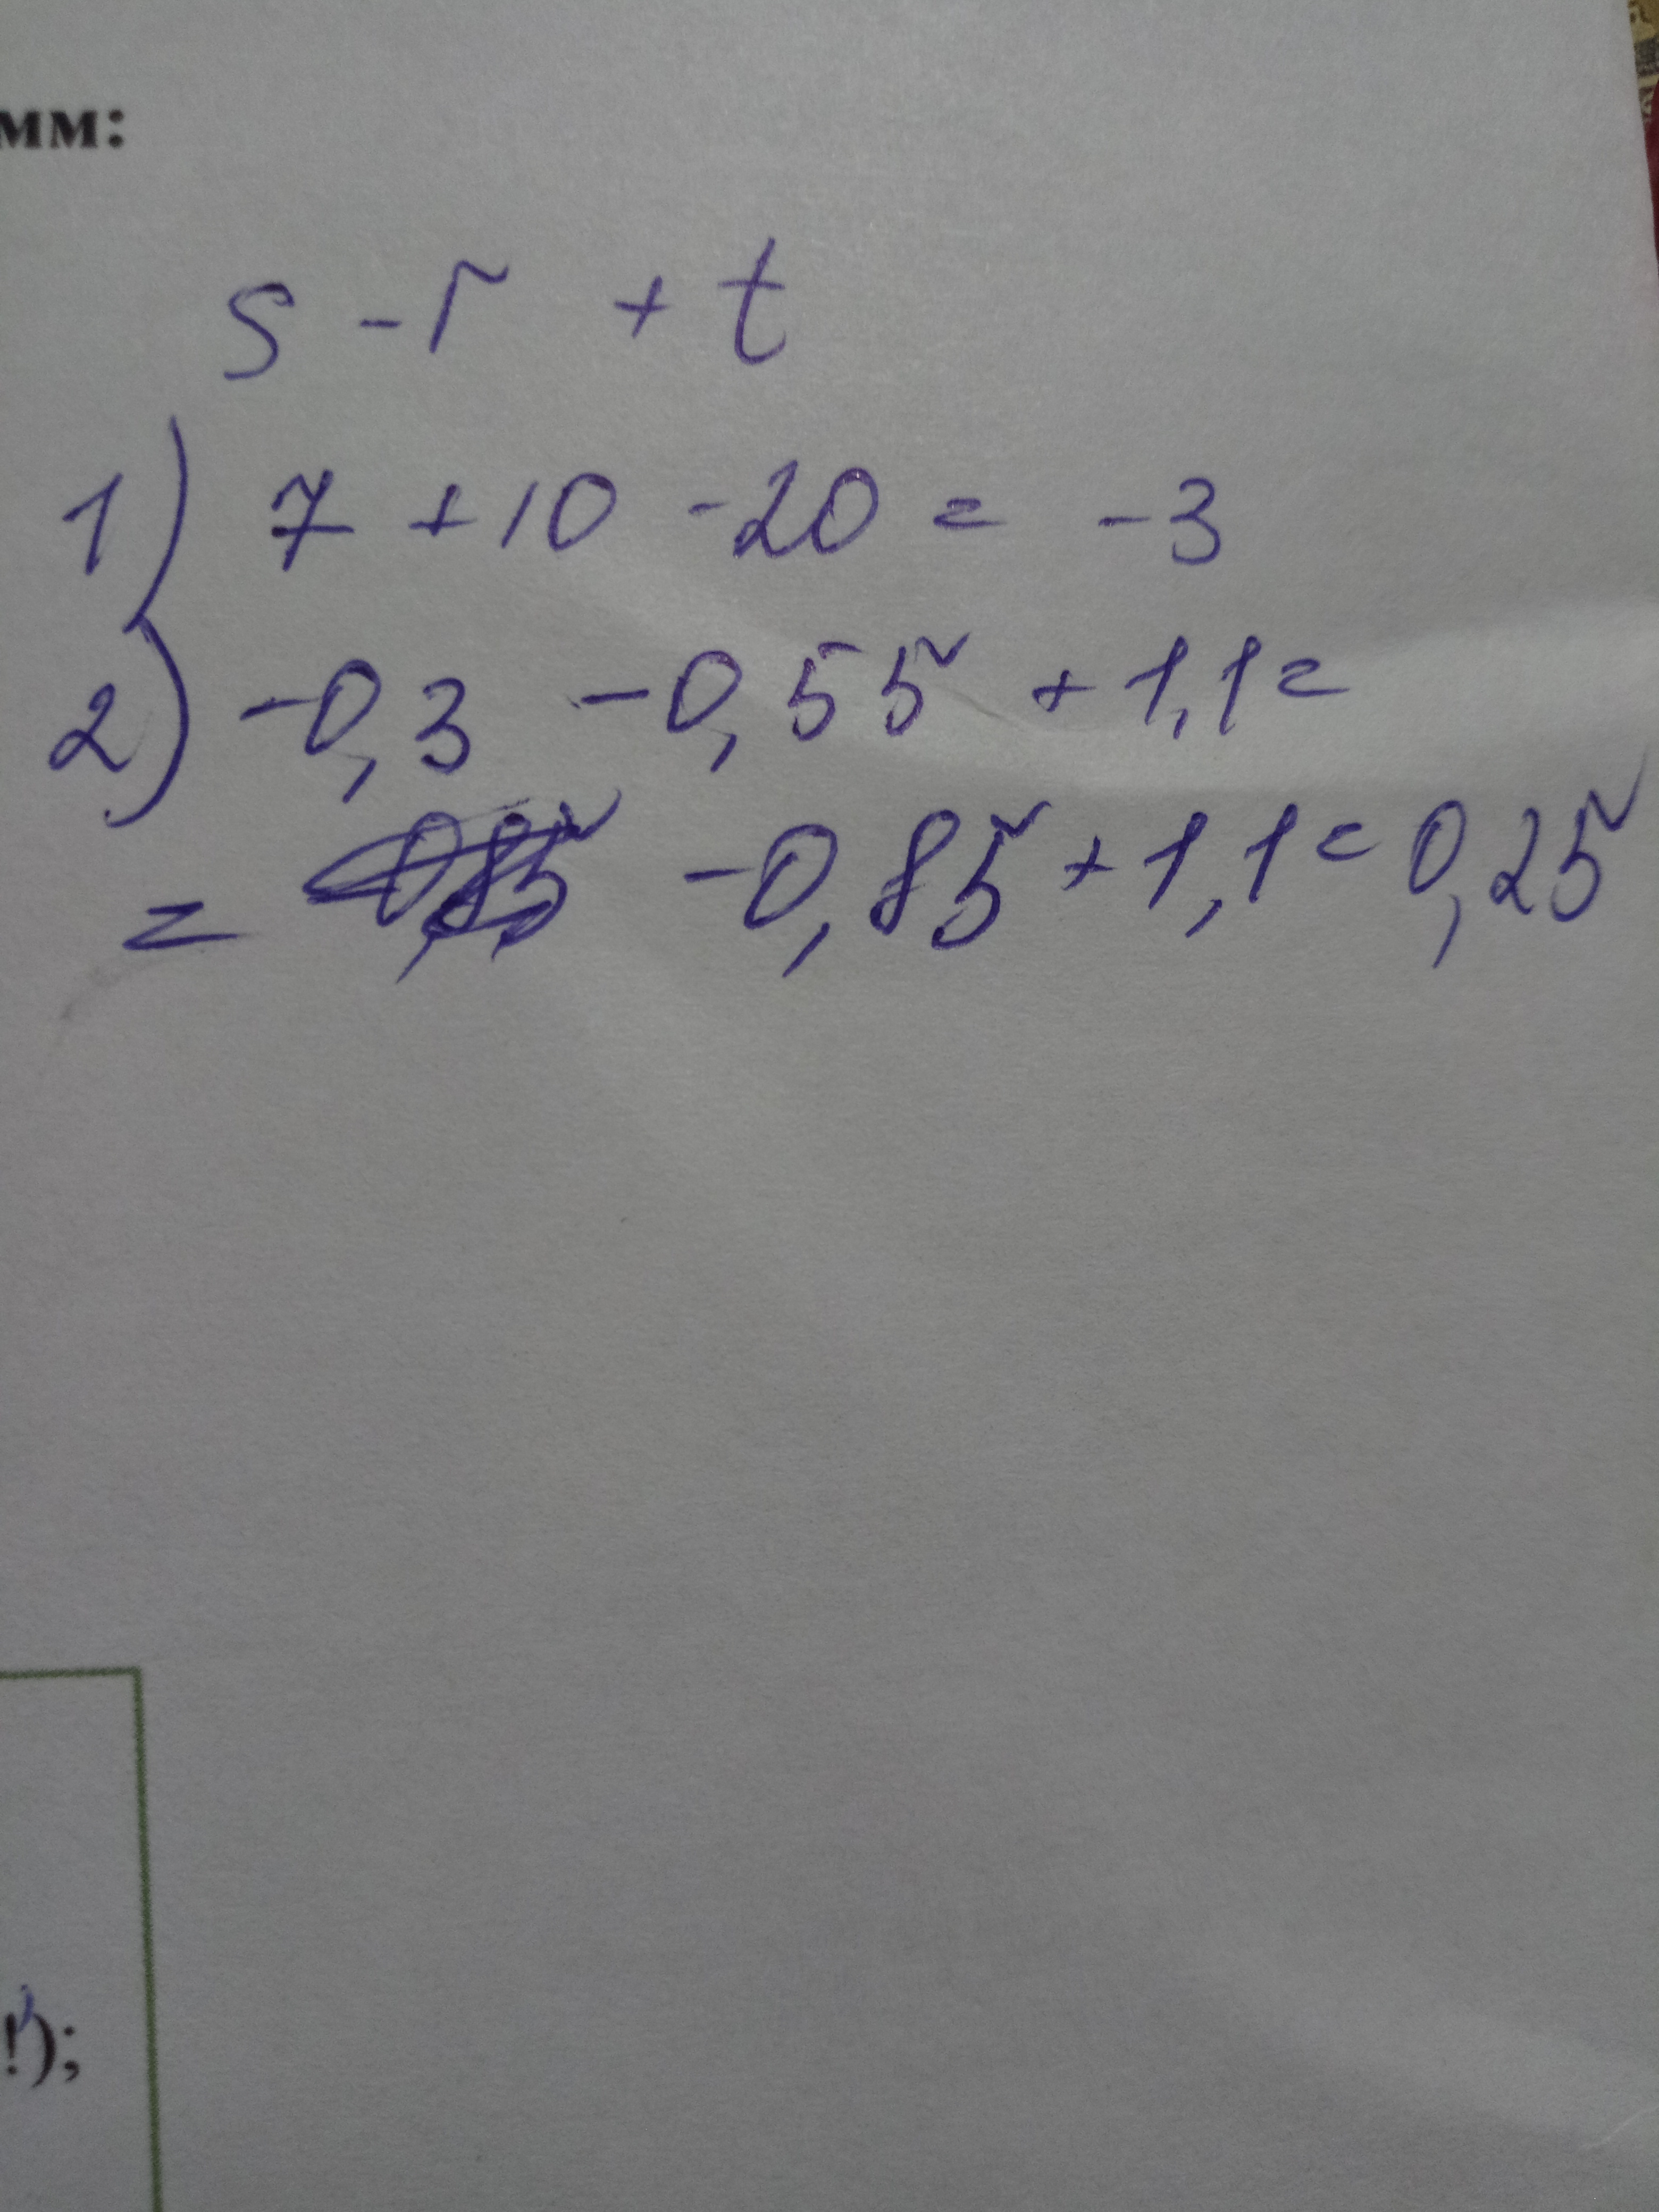 мм:
s - r + t
1) 7 + 10 - 20 = -3
2) -0,3 - 0,55 + 1,1 =
= -0,85 + 1,1 = 0,25
!);